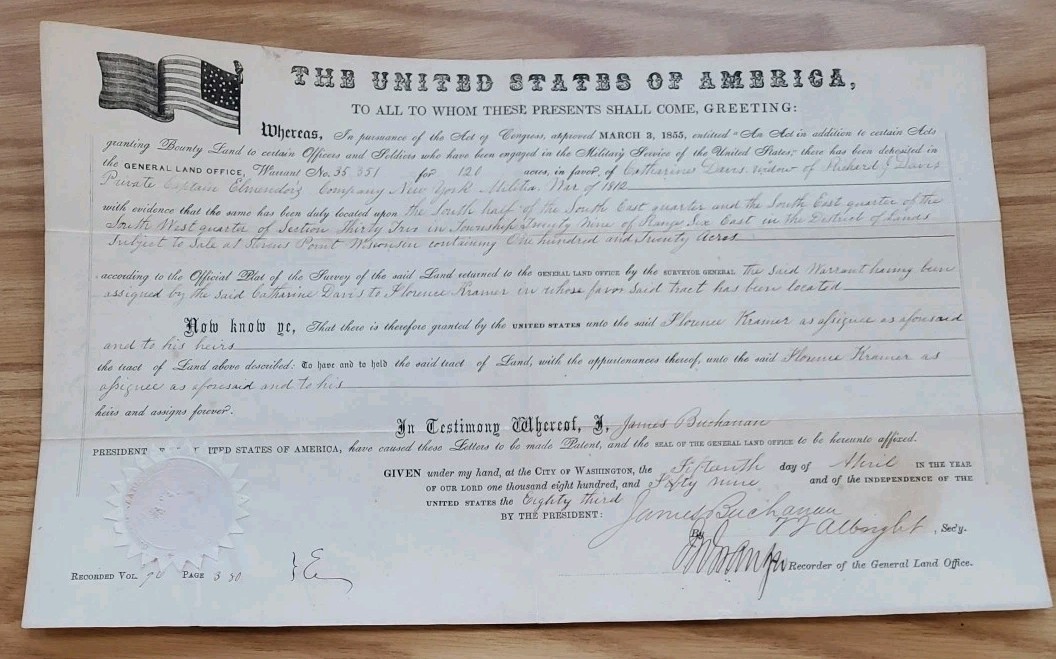 THE UNITED STATES OF AMERICA,
TO ALL TO WHOM THESE PRESENTS SHALL COME, GREETING:
Whereas, In pursuance of the Act of Congress, approved MARCH 3, 1855, entitled "An Act in addition to certain Acts
granting Bounty Land to certain Officers and Soldiers who have been engaged in the Military Service of the United States," there has been deposited in
the GENERAL LAND OFFICE, Warrant No. 35 351 for 120 acres, in favor of Catharine Davis widow of Richard J Davis
Private Captain Company New York Militia War of 1812
with evidence that the same has been duly located upon the South half of the South East quarter and the South East quarter of the
South West quarter of Section Thirty Two in Township Twenty Nine of Range Six East in the District of Lands
Subject to Sale at Stevens Point Wisconsin containing One hundred and Twenty Acres
according to the Official Plat of the Survey of the said Land returned to the GENERAL LAND OFFICE by the SURVEYOR GENERAL the said Warrant having been
assigned by the said Catharine Davis to Florence Kramer in whose favor said tract has been located
Now know ye, That there is therefore granted by the UNITED STATES unto the said Florence Kramer as assignee as aforesaid
and to his heirs
the tract of Land above described: To have and to hold the said tract of Land, with the appurtenances thereof, unto the said Florence Kramer as
assignee as aforesaid and to his
heirs and assigns forever.
In Testimony Whereof, I, James Buchanan
PRESIDENT ITED STATES OF AMERICA, have caused these Letters to be made Patent, and the SEAL OF THE GENERAL LAND OFFICE to be hereunto affixed.
GIVEN under my hand, at the CITY OF WASHINGTON, the Fifteenth day of April IN THE YEAR
OF OUR LORD one thousand eight hundred, and Fifty nine and of the INDEPENDENCE OF THE
UNITED STATES the Eighty third
BY THE PRESIDENT: James Buchanan
By Albright, Sec'y.
Recorder of the General Land Office.
RECORDED VOL. PAGE 350